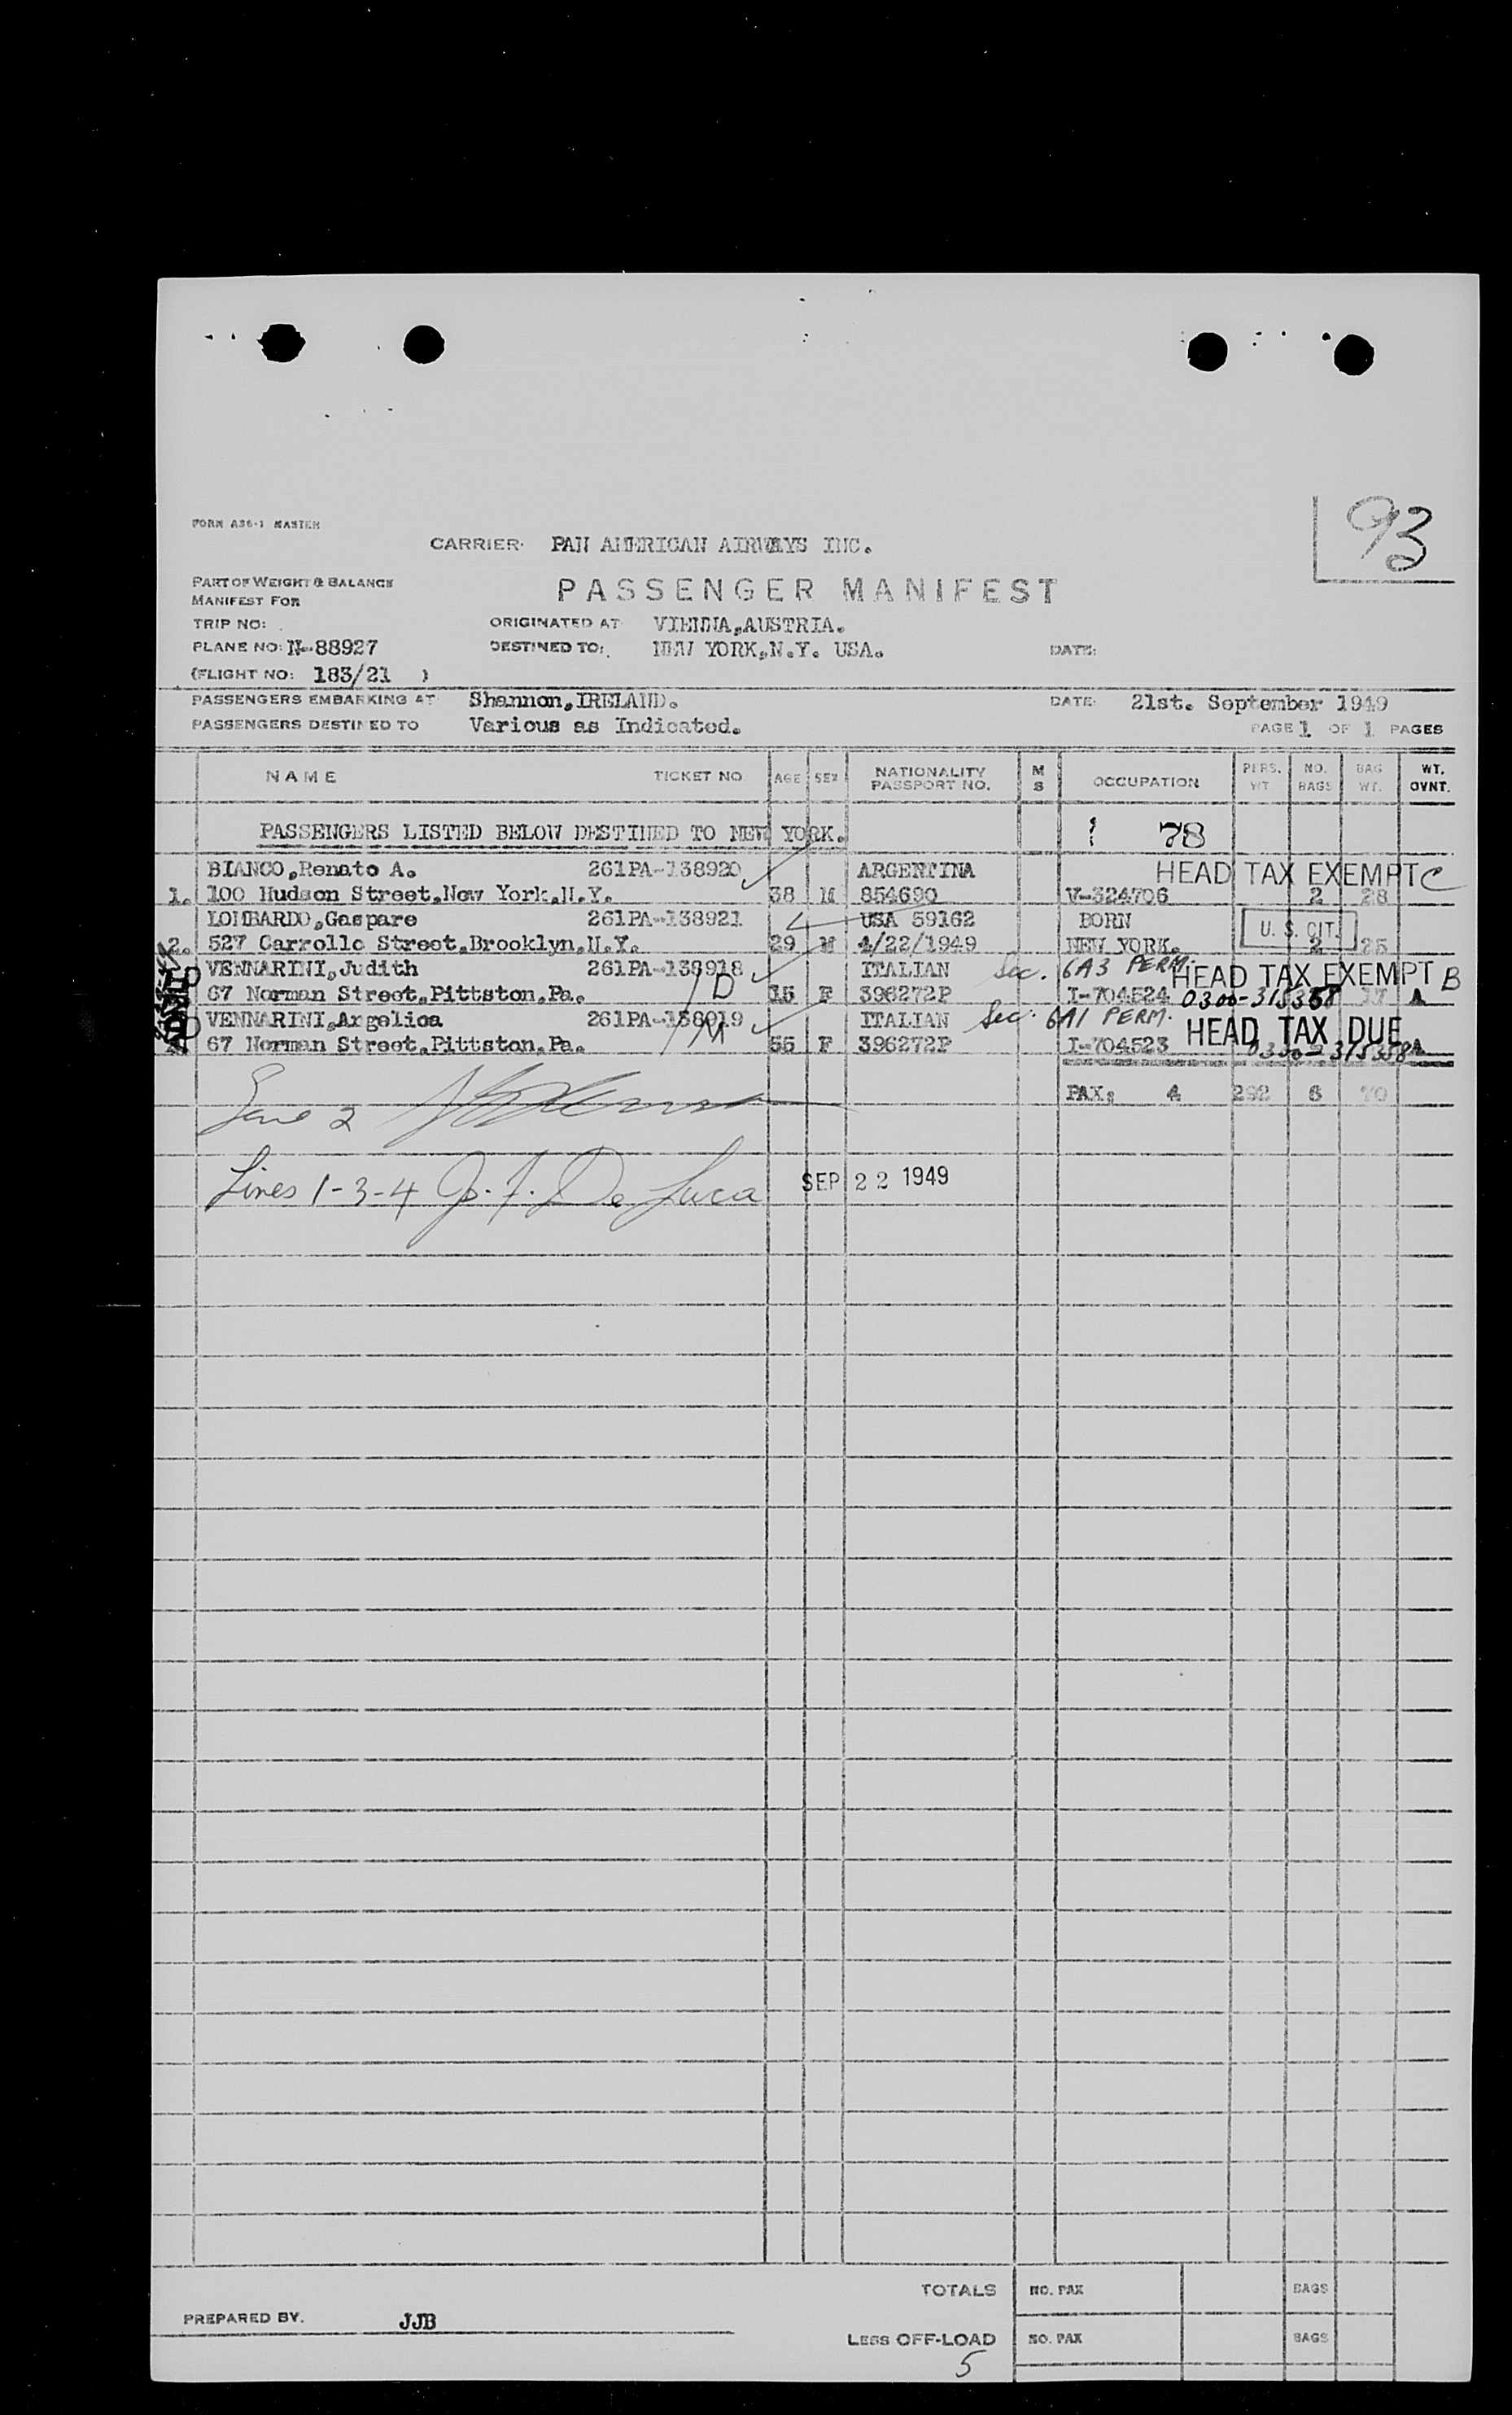 93
FORM A36-1 MASTER
CARRIER: PAN AMERICAN AIRWAYS INC.
PART OF WEIGHT & BALANCE
MANIFEST FOR
PASSENGER MANIFEST
TRIP NO: ORIGINATED AT VIENNA,AUSTRIA.
PLANE NO: N-88927 DESTINED TO: NEW YORK,N.Y. USA. DATE:
(FLIGHT NO: 183/21 )
PASSENGERS EMBARKING AT Shannon,IRELAND. DATE: 21st. September 1949
PASSENGERS DESTINED TO Various as Indicated. PAGE 1 OF 1 PAGES
NAME TICKET NO AGE SEX NATIONALITY PASSPORT NO. M S OCCUPATION PERS. WT NO. BAGS BAG WT. WT. OVNT.
PASSENGERS LISTED BELOW DESTINED TO NEW YORK. 78
BIANCO,Renato A. 261PA-138920 ARGENTINA HEAD TAX EXEMPT C
1. 100 Hudson Street,New York,N.Y. 38 M 854690 V-324706 2 28
LOMBARDO,Gaspare 261PA-138921 USA 59162 BORN U. S. CIT.
2. 527 Carrollo Street,Brooklyn,N.Y. 29 M 4/22/1949 NEW YORK. 2 25
VENNARINI,Judith 261PA-138918 ITALIAN Sec. 6A3 PERM. HEAD TAX EXEMPT B
67 Norman Street,Pittston,Pa. D 15 F 396272P I-704524 0300-315358 17 A
VENNARINI,Argelica 261PA-138919 ITALIAN Sec. 6A1 PERM. HEAD TAX DUE
67 Norman Street,Pittston,Pa. M 55 F 396272P I-704523 0300-315358 A
PAX: 4 292 6 70
2
Lines 1-3-4 Jo. F. De Luca SEP 22 1949
TOTALS NO. PAX BAGS
PREPARED BY. JJB
LESS OFF-LOAD NO. PAX BAGS
5